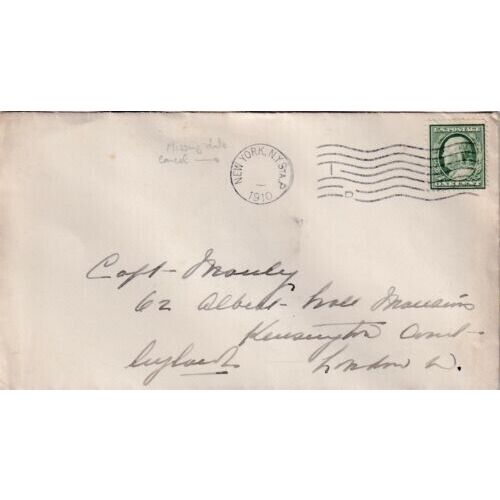 Missing date
cancel →
NEW YORK, N.Y. STA. P
1910
I
D
U.S. POSTAGE
ONE CENT
Capt - Manly
62 Albert - Hall Mansions
Kensington Court -
England London W.